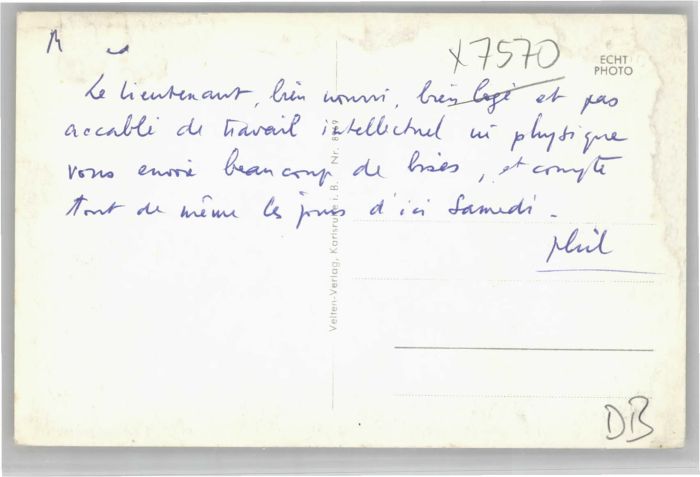 x7570
ECHT
PHOTO
Le lieutenant, bien nourri, bien logé et pas
accablé de travail intellectuel ni physique
vous envoie beaucoup de bises, et compte
tout de même les jours d'ici Samedi.
phil
Velten-Verlag, Karlsruhe i. B. Nr.
DB